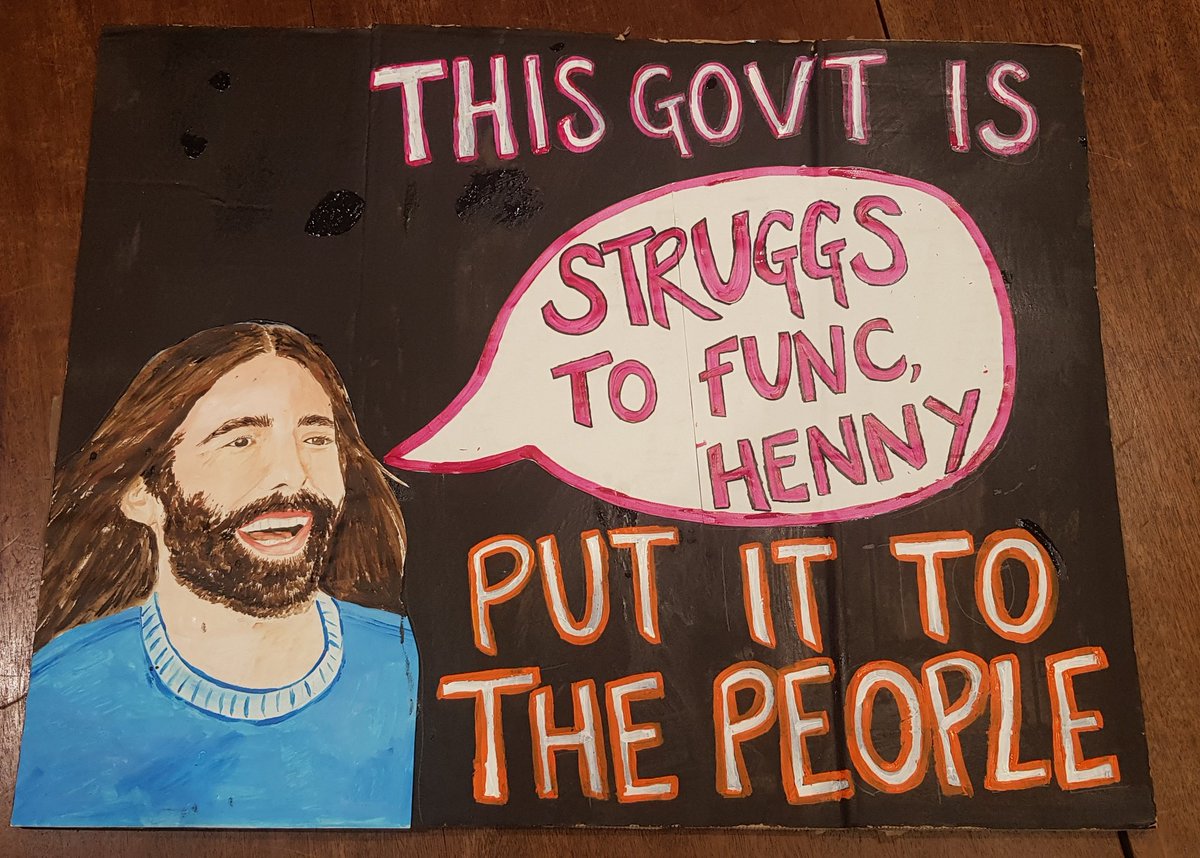 THIS GOVT IS
STRUGGS
TO FUNC,
HENNY
PUT IT TO
THE PEOPLE